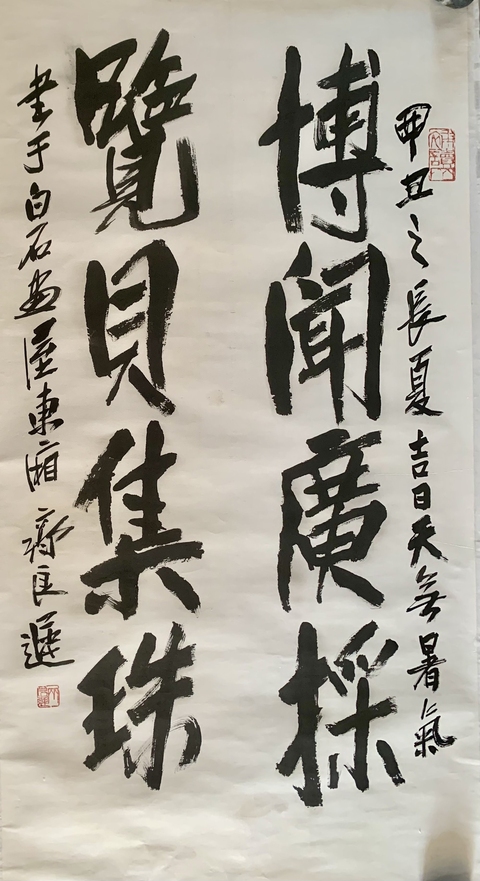 甲丑之長夏吉日天無暑氣
博聞廣採
覽貝集珠
書于白石畫屋東廂 齊良遲